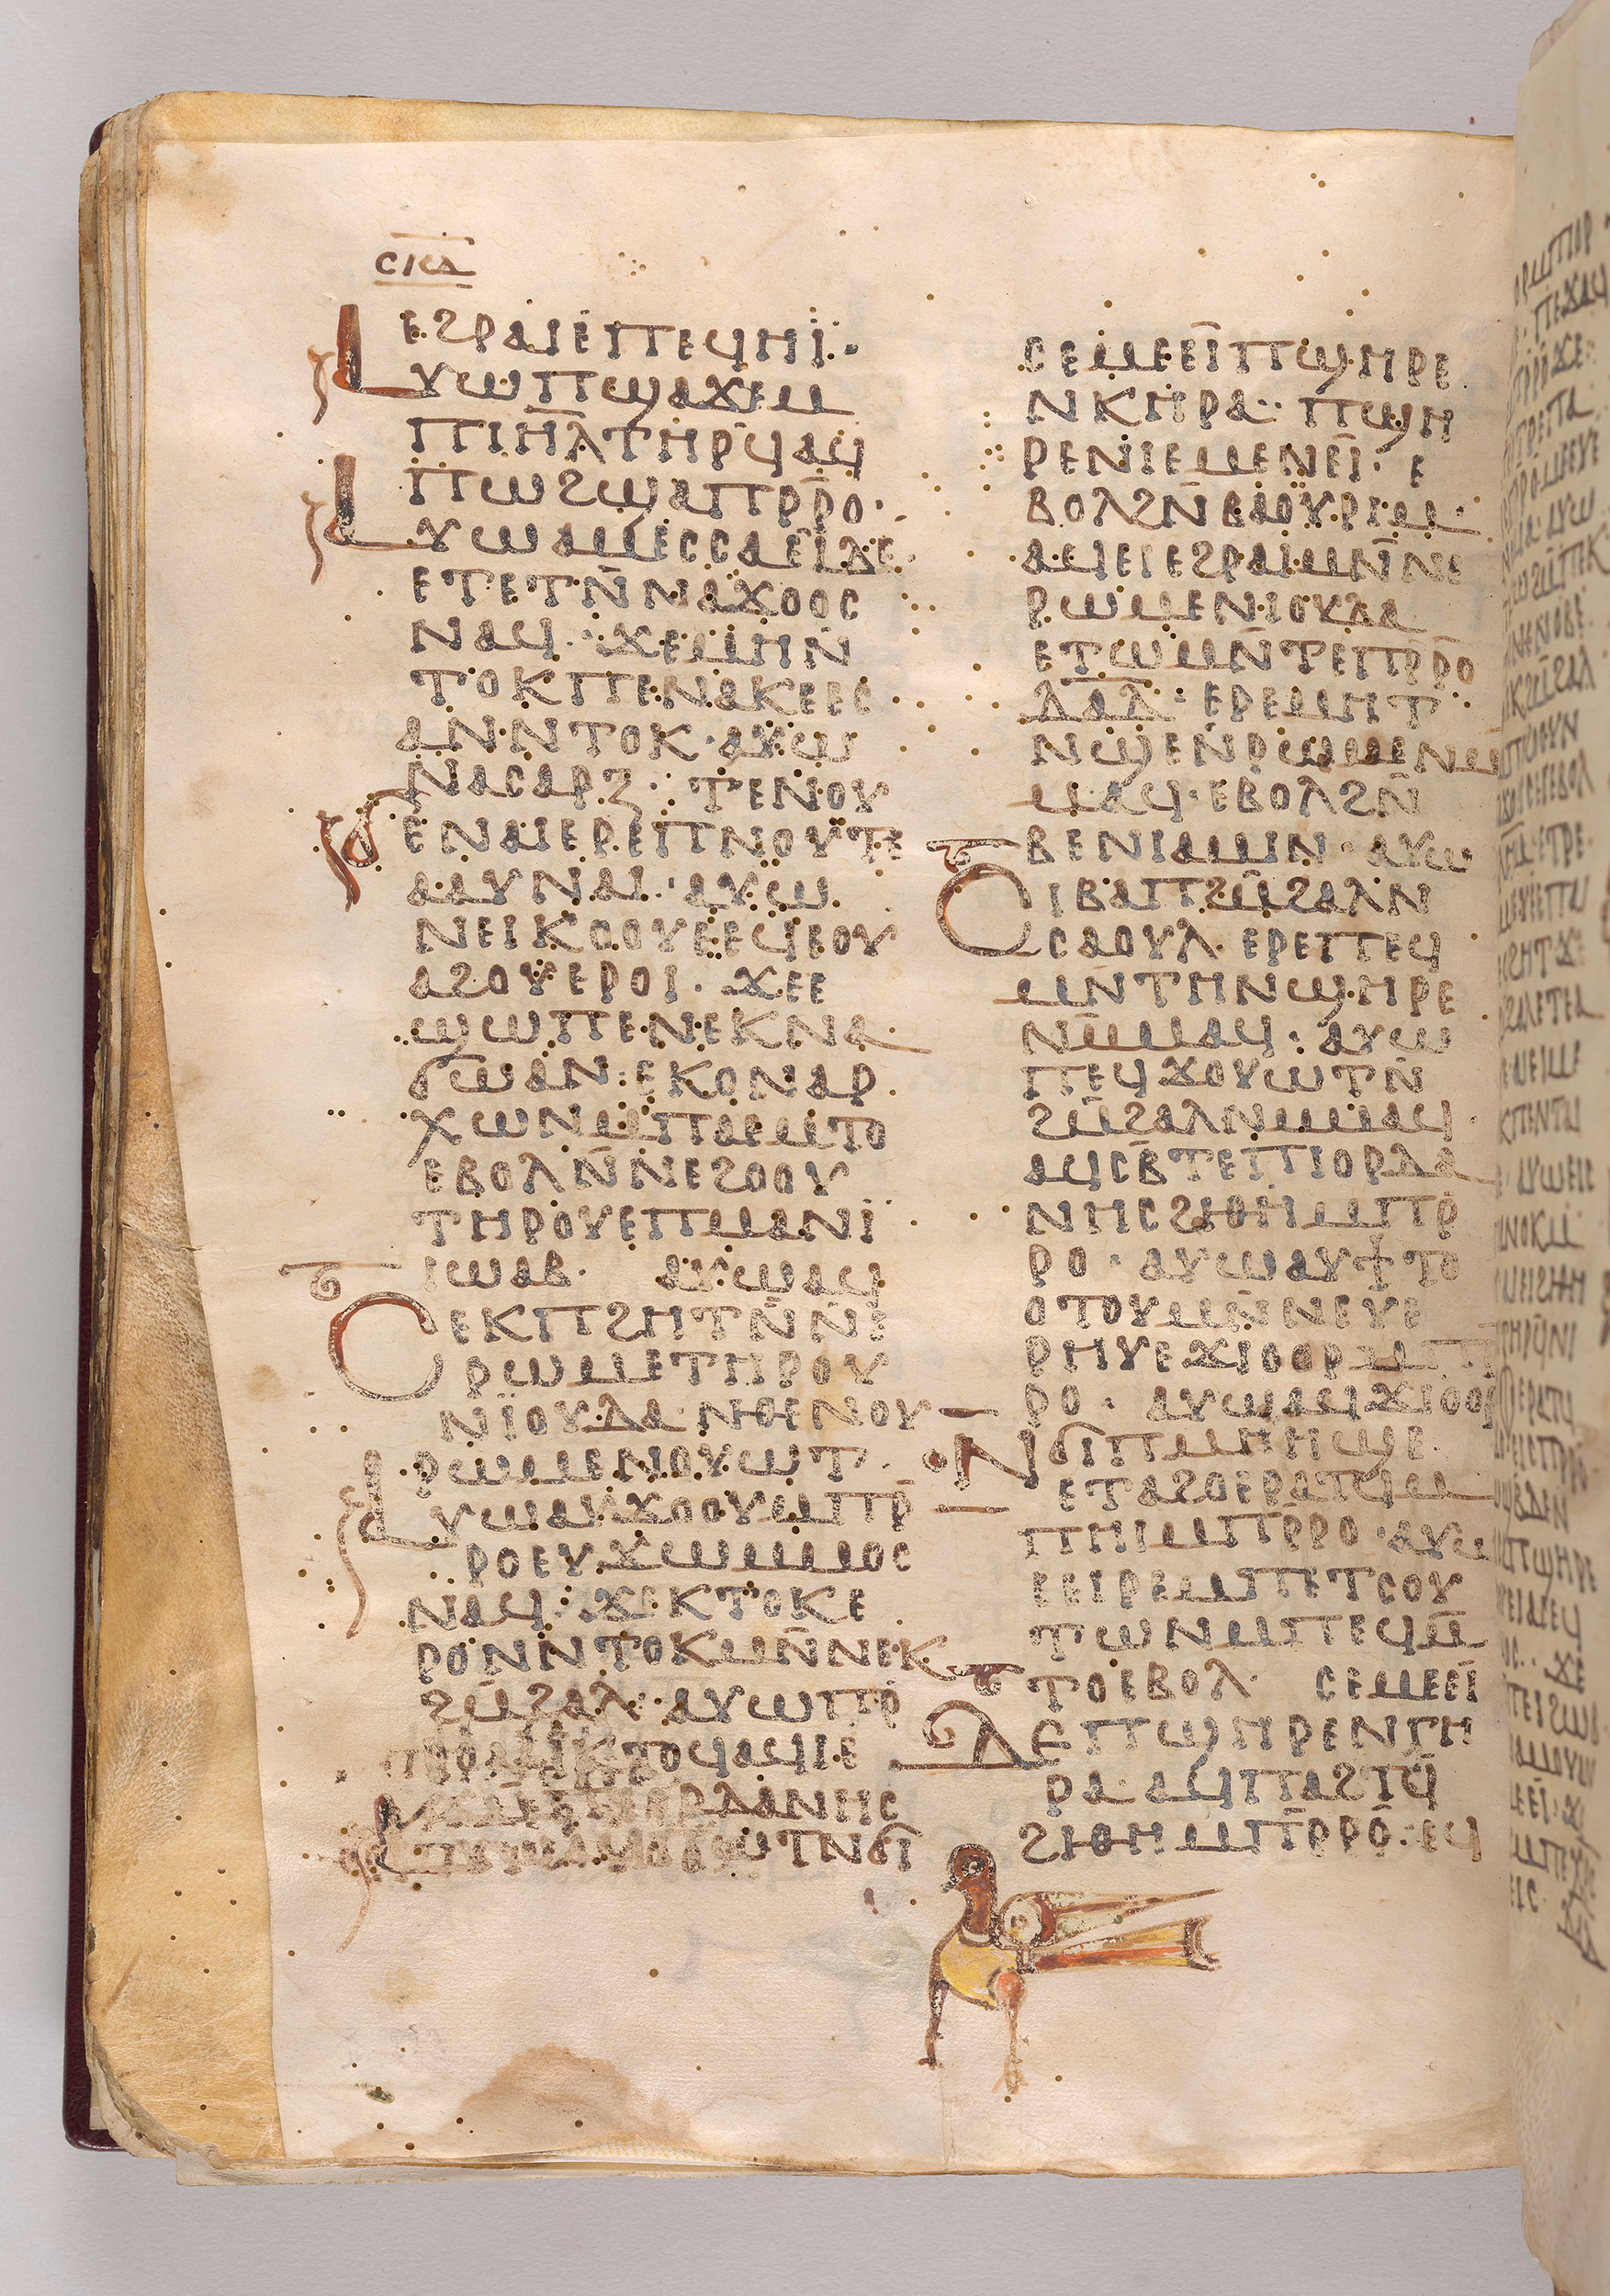 ⲥⲕⲇ
ⲉϩⲣⲁⲓⲉⲡⲉϥⲏⲓ·
ⲁⲩⲱⲡϣⲁϫⲉⲙ
ⲡⲓⲏ̅ⲗⲧⲏⲣϥⲁϥ
ⲡⲱϩϣⲁⲡⲣ̅ⲣⲟ·
ⲁⲩⲱⲁⲙⲉⲥⲥⲁⲉⲓⲇⲉ
ⲉⲧⲉⲧⲛ̅ⲛⲁϫⲟⲟⲥ
ⲛⲁϥ· ϫⲉⲙⲏⲛ̅
ⲧⲟⲕⲡⲉⲛⲁⲕⲉⲉⲥ
ⲁⲛ·ⲛⲧⲟⲕ·ⲁⲩⲱ
ⲛⲁⲥⲁⲣⲝ· ⲧⲉⲛⲟⲩ
ϭⲉⲛⲁⲓⲉⲣⲉⲡⲛⲟⲩⲧⲉ
ⲁⲁⲩⲛⲁⲓ·ⲁⲩⲱ
ⲛⲉⲓⲕⲟⲟⲩⲉⲉϥⲉⲟⲩ
ⲁϩⲟⲩⲉⲣⲟⲓ· ϫⲉⲉ
ϣⲱⲡⲉⲛⲉⲕⲛⲁ
ϭⲱⲁⲛ·ⲉⲕⲟⲛⲁⲣ
ⲭⲱⲛⲙ̅ⲡⲁⲉⲙⲧⲟ
ⲉⲃⲟⲗⲛ̅ⲛⲉϩⲟⲟⲩ
ⲧⲏⲣⲟⲩⲉⲡⲙⲁⲛⲓ̈
ⲓⲱⲁⲃ· ⲁⲩⲱⲁϥ
ⲥⲉⲕⲡϩⲏⲧⲛ̅ⲛ̅ⲉ
ⲣⲱⲙⲉⲧⲏⲣⲟⲩ
ⲛⲓ̈ⲟⲩⲇⲁ·ⲛⲑⲉⲛⲟⲩ
ⲣⲱⲙⲉⲛⲟⲩⲱⲧ·
ⲁⲩⲱⲁⲩϫⲟⲟⲩⲙ̅ⲡⲣ̅
ⲣⲟⲉⲩϫⲱⲙⲙⲟⲥ
ⲛⲁϥ· ϫⲉⲕⲧⲟⲕⲉ
ⲣⲟⲛⲛ̅ⲧⲟⲕⲙⲛ̅ⲛⲉⲕ
ϩⲙ̅ϩⲁⲗ·ⲁⲩⲱⲡⲣ̅
ⲧⲟϥⲁϥⲓⲉ
ⲣⲇⲁⲛⲏⲥ
ⲱⲧⲛϭⲓ
ⲥⲉⲙⲉⲉⲓ̅ⲡϣⲏⲣⲉ
ⲛⲕⲏⲣⲁ· ⲡϣⲏ
ⲣⲉⲛⲓⲉⲙⲉⲛⲉⲓ̅· ⲉ
ⲃⲟⲗϩⲛ̅ⲃⲁⲟⲩⲣⲓⲙ·
ⲁϥⲉⲓⲉϩⲣⲁⲓⲙⲛ̅ⲛⲉ
ⲣⲱⲙⲉⲛⲓⲟⲩⲇⲁ
ⲉⲧⲱⲙⲛ̅ⲧⲉⲡⲣ̅ⲣⲟ
ⲇ̅ⲁ̅ⲇ̅· ⲉⲣⲉⲙⲏⲧ
ⲛϣⲉⲛⲣⲱⲙⲉⲛⲙ̅
ⲙⲁϥ·ⲉⲃⲟⲗϩⲛ̅
ⲃⲉⲛⲓⲁⲙⲓⲛ·ⲁⲩⲱ
ⲥⲓⲃⲁⲡϩⲙ̅ϩⲁⲗⲛ
ⲥⲁⲟⲩⲗ·ⲉⲣⲉⲡⲉϥ
ⲙⲛⲧⲏⲛϣⲏⲣⲉ
ⲛⲙ̅ⲙⲁϥ· ⲁⲩⲱ
ⲡⲉϥϫⲟⲩⲱⲧⲛ̅
ϩⲙ̅ϩⲁⲗⲛⲙ̅ⲙⲁϥ·
ⲁϥⲥⲃ̅ⲧⲉⲡⲓⲟⲣⲇⲁ
ⲛⲏⲥϩⲓⲑⲏⲙ̅ⲡⲣ̅
ⲣⲟ· ⲁⲩⲱⲁⲩϯⲧⲟ
ⲟⲧⲟⲩⲙⲛ̅ⲛⲉⲩⲉ
ⲣⲏⲩⲉϫⲓⲟⲟⲣⲙ̅ⲡ
ⲣⲟ· ⲁⲩⲱⲁϥϫⲓⲟⲟⲣ
ⲛϭⲓⲡⲙⲏⲏϣⲉ
ⲉⲧⲁϩⲟⲉⲣⲁⲧϥⲙ
ⲡⲏⲓⲙ̅ⲡⲣ̅ⲣⲟ·ⲁⲩⲱ
ⲉⲉⲓⲣⲉⲙ̅ⲡⲉⲧⲥⲟⲩ
ⲧⲱⲛⲙ̅ⲡⲉϥⲙ̅
ⲧⲟⲉⲃⲟⲗ· ⲥⲉⲙⲉⲉⲓ̅
ⲇⲉⲡϣⲏⲣⲉⲛⲅⲏ
ⲣⲁ·ⲁϥⲡⲁϩⲧϥ̅
ϩⲓⲑⲏⲙ̅ⲡⲣ̅ⲣⲟ·ⲉϥ